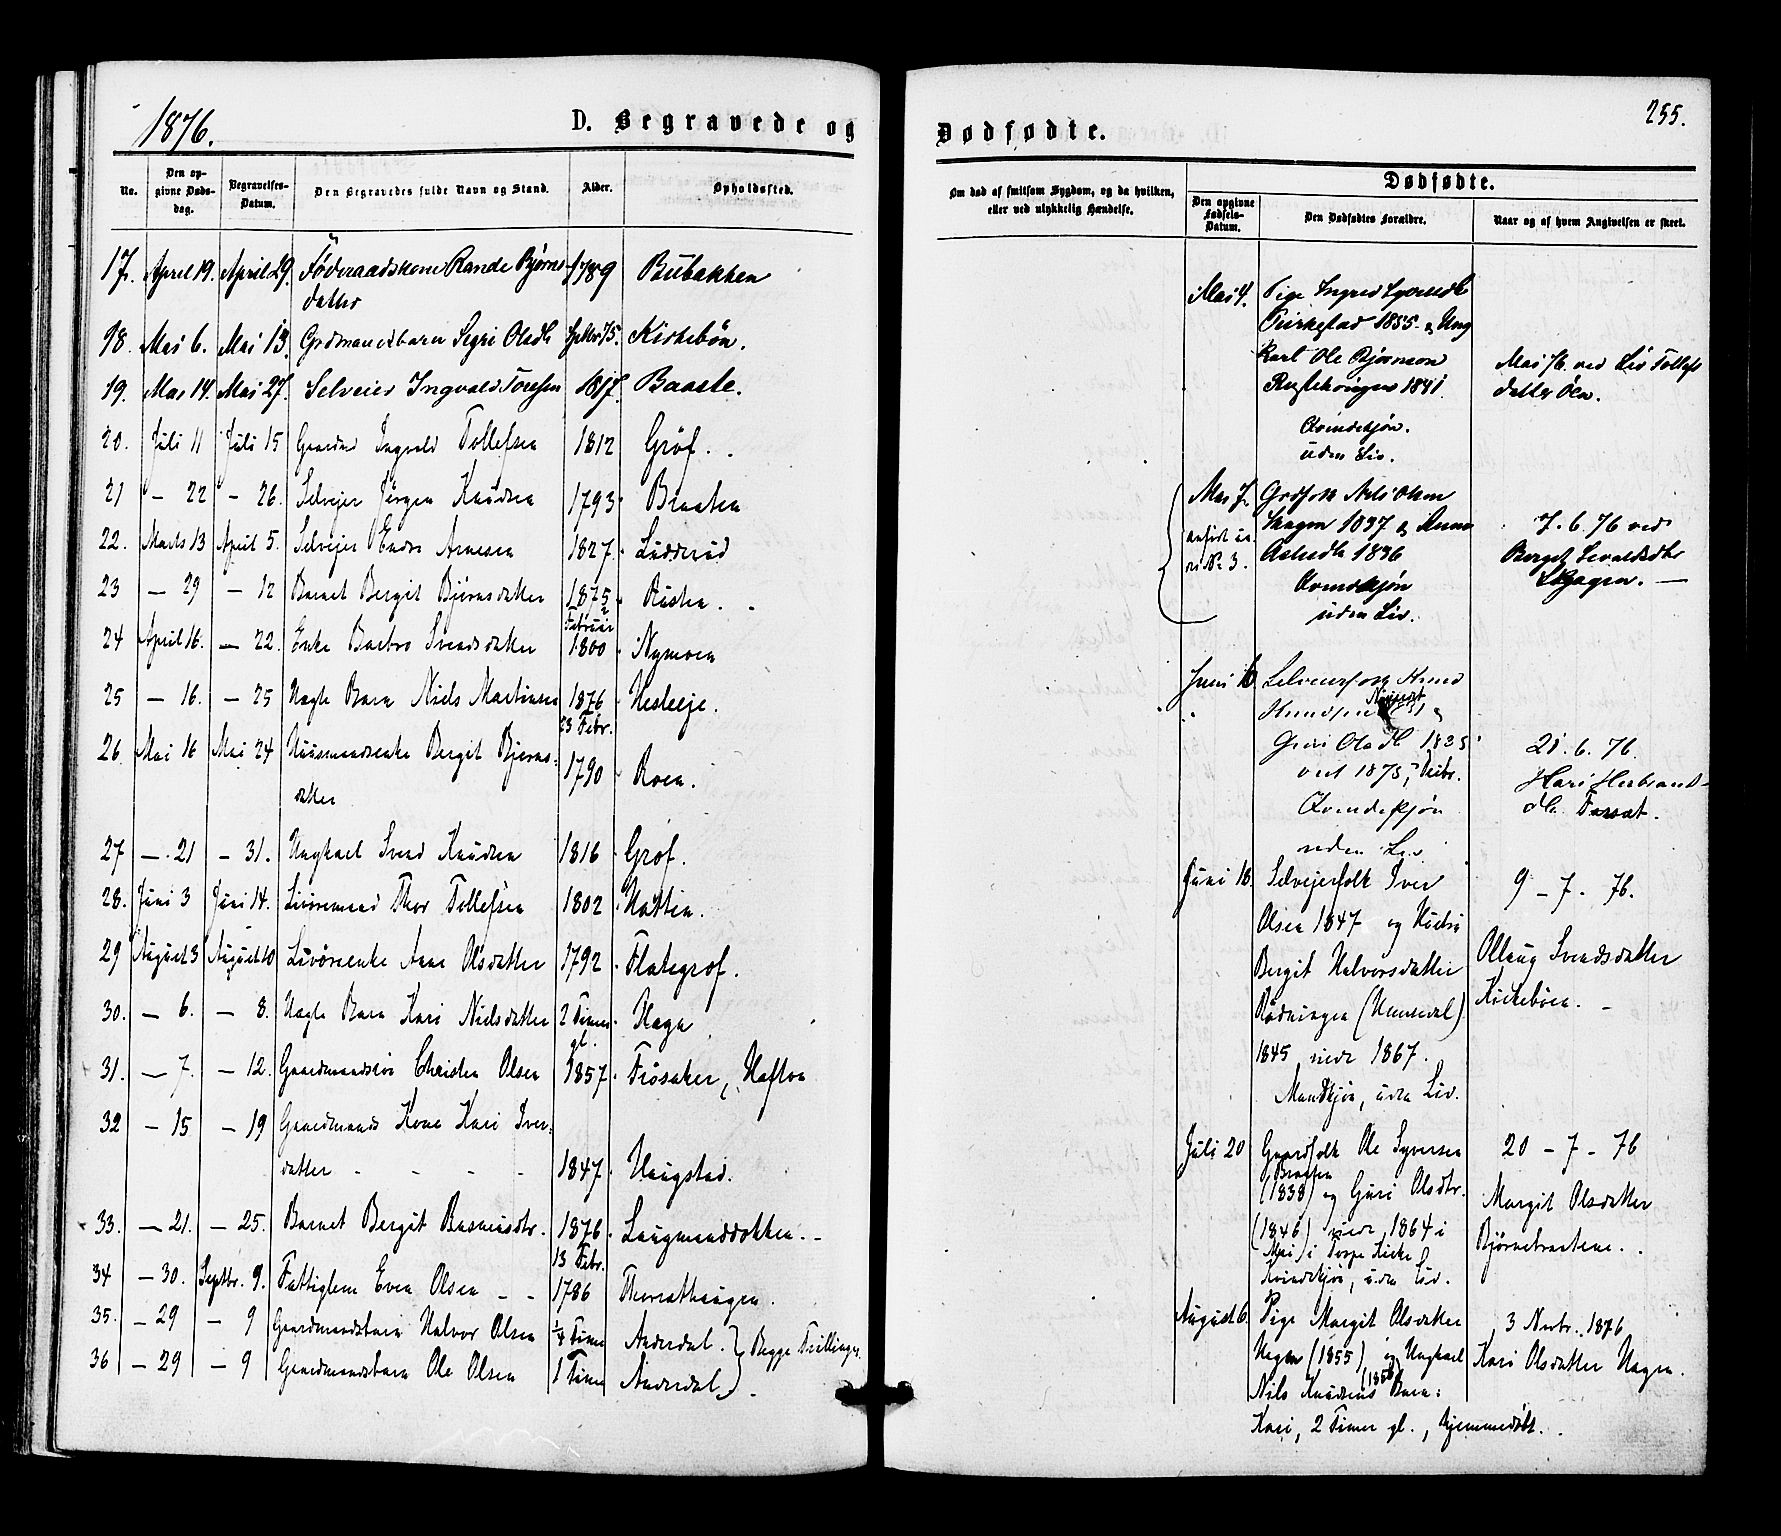 1876.
D. Begravede og
No.
Den op-
givne Døds-
dag.
Begravelses-
Datum.
Den Begravedes fulde Navn og Stand.
Alder.
Opholdssted.
17. April 19. April 29. Føderaadskone Rande Bjørns- 1789 Bubakken
datter
18. Mai 6. Mai 13. Grdmandsbarn Sigri Olsdtr Kirkebøn.
19. Mai 14. Mai 27. Selveier Ingvald Toresen 1817. Baaste.
20. Juli 11 Juli 15 Gaardm Ingvald Tollefsen 1812 Gróf.
21 — 22 — 26. Selvejer Jörgen Knudsen 1793 Braaten
22. Marts 13 April 5. Selvejer Endre Arnesen 1827. Ludderud
23 — 29 — 12 Barnet Bergit Bjørnsdatter 1875 Rusten.
Februar
24 April 16. — 22. Enke Barbro Svendsdatter 1800 Nymoen
25 — 16. — 25 Uægte Barn Niels Martinsen 1876 Hesleeje.
23 Febr.
26 Mai 16 Mai 24 Huusmandsenke Bergit Bjørns-
datter 1790 Roen.
27 — 21 — 31. Ungkarl Svend Knudsen 1816 Gróf.
28. Juni 3 Juni 14. Livøremand Thor Tollefsen 1802 Hattin.
29 August 3 August 10 Livøreenke Anne Olsdatter 1792 Flategrof.
30. — 6. — 8. Uægte Barn Kari Nielsdatter 2 Timer Hagen
gl.
31. — 7. — 12. Gaardmandssøn Christen Olsen 1857. Frøsaker, Hafton
32 — 15 — 19 Gaardmands Kone Kari Iver-
datter - - - - 1847 Haugstad.
33. — 21. — 25. Barnet Bergit Rasmusdtr. 1876 Laugmanddokken.
13 Febr.
34 — 30. Septbr. 9. Fattiglem Even Olsen - - 1786 Thorsthaugen.
35. — 29 — 9 Gaardmandsbarn Halvor Olsen ¼ Time Anderdal. } Begge Trillinger.
36 — 29 — 9 Gaardmandsbarn Ole Olsen 1 Time Anderdal.
255.
Dødfødte.
Om død af smitsom Sygdom, og da hvilken,
eller ved ulykkelig Hændelse.
Dødfødte.
Den opgivne
Fødsels-
Datum.
Den Dødfødtes Forældre.
Naar og af hvem Angivelsen er skeet.
Mai 4. Pige Ingrid Syversdtr
1855 & Ung
Karl Ole Bjørnson
1841
Mai 16. ved Liv Tollefs
datter Øen.
Qvindekjøn.
uden Liv.
Mai 7. Grdfolk Nils Olsen
anført
No 3.
Skagen 1837 & Anne
Aslesdtr 1836
Qvindekjøn
uden Liv.
7. 6. 76 ved
Bergit Sevaldsdtr
Skagen. —
Juni 16 Selveierfolk
Guri Olsdtr 1835
viet 1875, Decbr.
Qvindekjøn
uden Liv
21. 6. 76.
Hari Herbrands-
dtr
Juni 18. Selvejerfolk Iver
Olsen 1847 og Hustru
Bergit Halvorsdatter
Rødningen (Hemsedal)
1845 viede 1867.
Mandkjøn, uden Liv.
9 — 7 — 76.
Ollaug Svendsdatter
Kirkebøen. —
Juli 20 Gaardfolk Ole Syversen
Braaten
(1838) og Guri Olsdtr.
(1846) viede 1864 i
Mai i Torpe Kirke
Kvindekjøn, uden Liv.
20 — 7 — 76
Margit Olsdatter
Bjørnebraatene.
August 6. Pige Margit Olsdatter
Hagen (1855), og Ungkarl
Nils Knudsens (1856) Barn:
Kari, 2 Timer gl., hjemmedøbt.
3 Novbr. 1876
Kari Olsdatter Hagen.